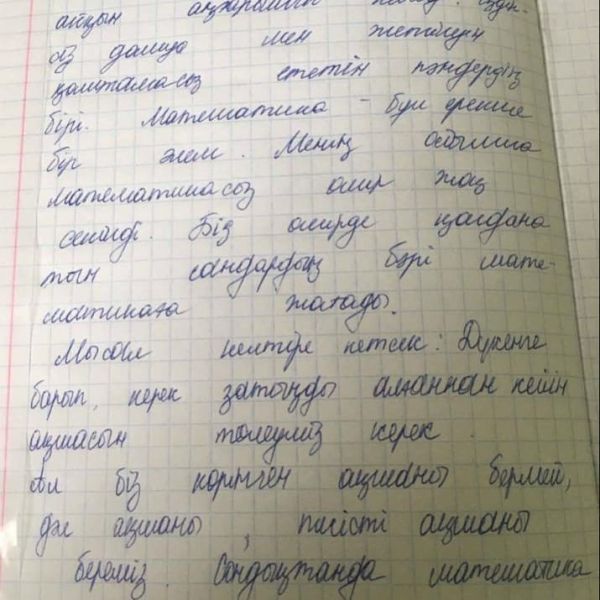 айқын
біз дамуы мен жетілуін
қамтамасыз ететін пәндердің
бірі. Математика – бұл ерекше
бір әлем. Менің ойымша
математикасыз өмір жоқ
секілді. Біз өмірде қолдана
тын сандардың бәрі мате-
матикаға жатады.
Мысал келтіре кетсек: Дүкенге
барып, керек затыңды алғаннан кейін
ақшасын төлеуміз керек.
Ал біз көрінген ақшаны бермей,
дәл ақшаны, тиісті ақшаны
береміз. Сондықтанда математика